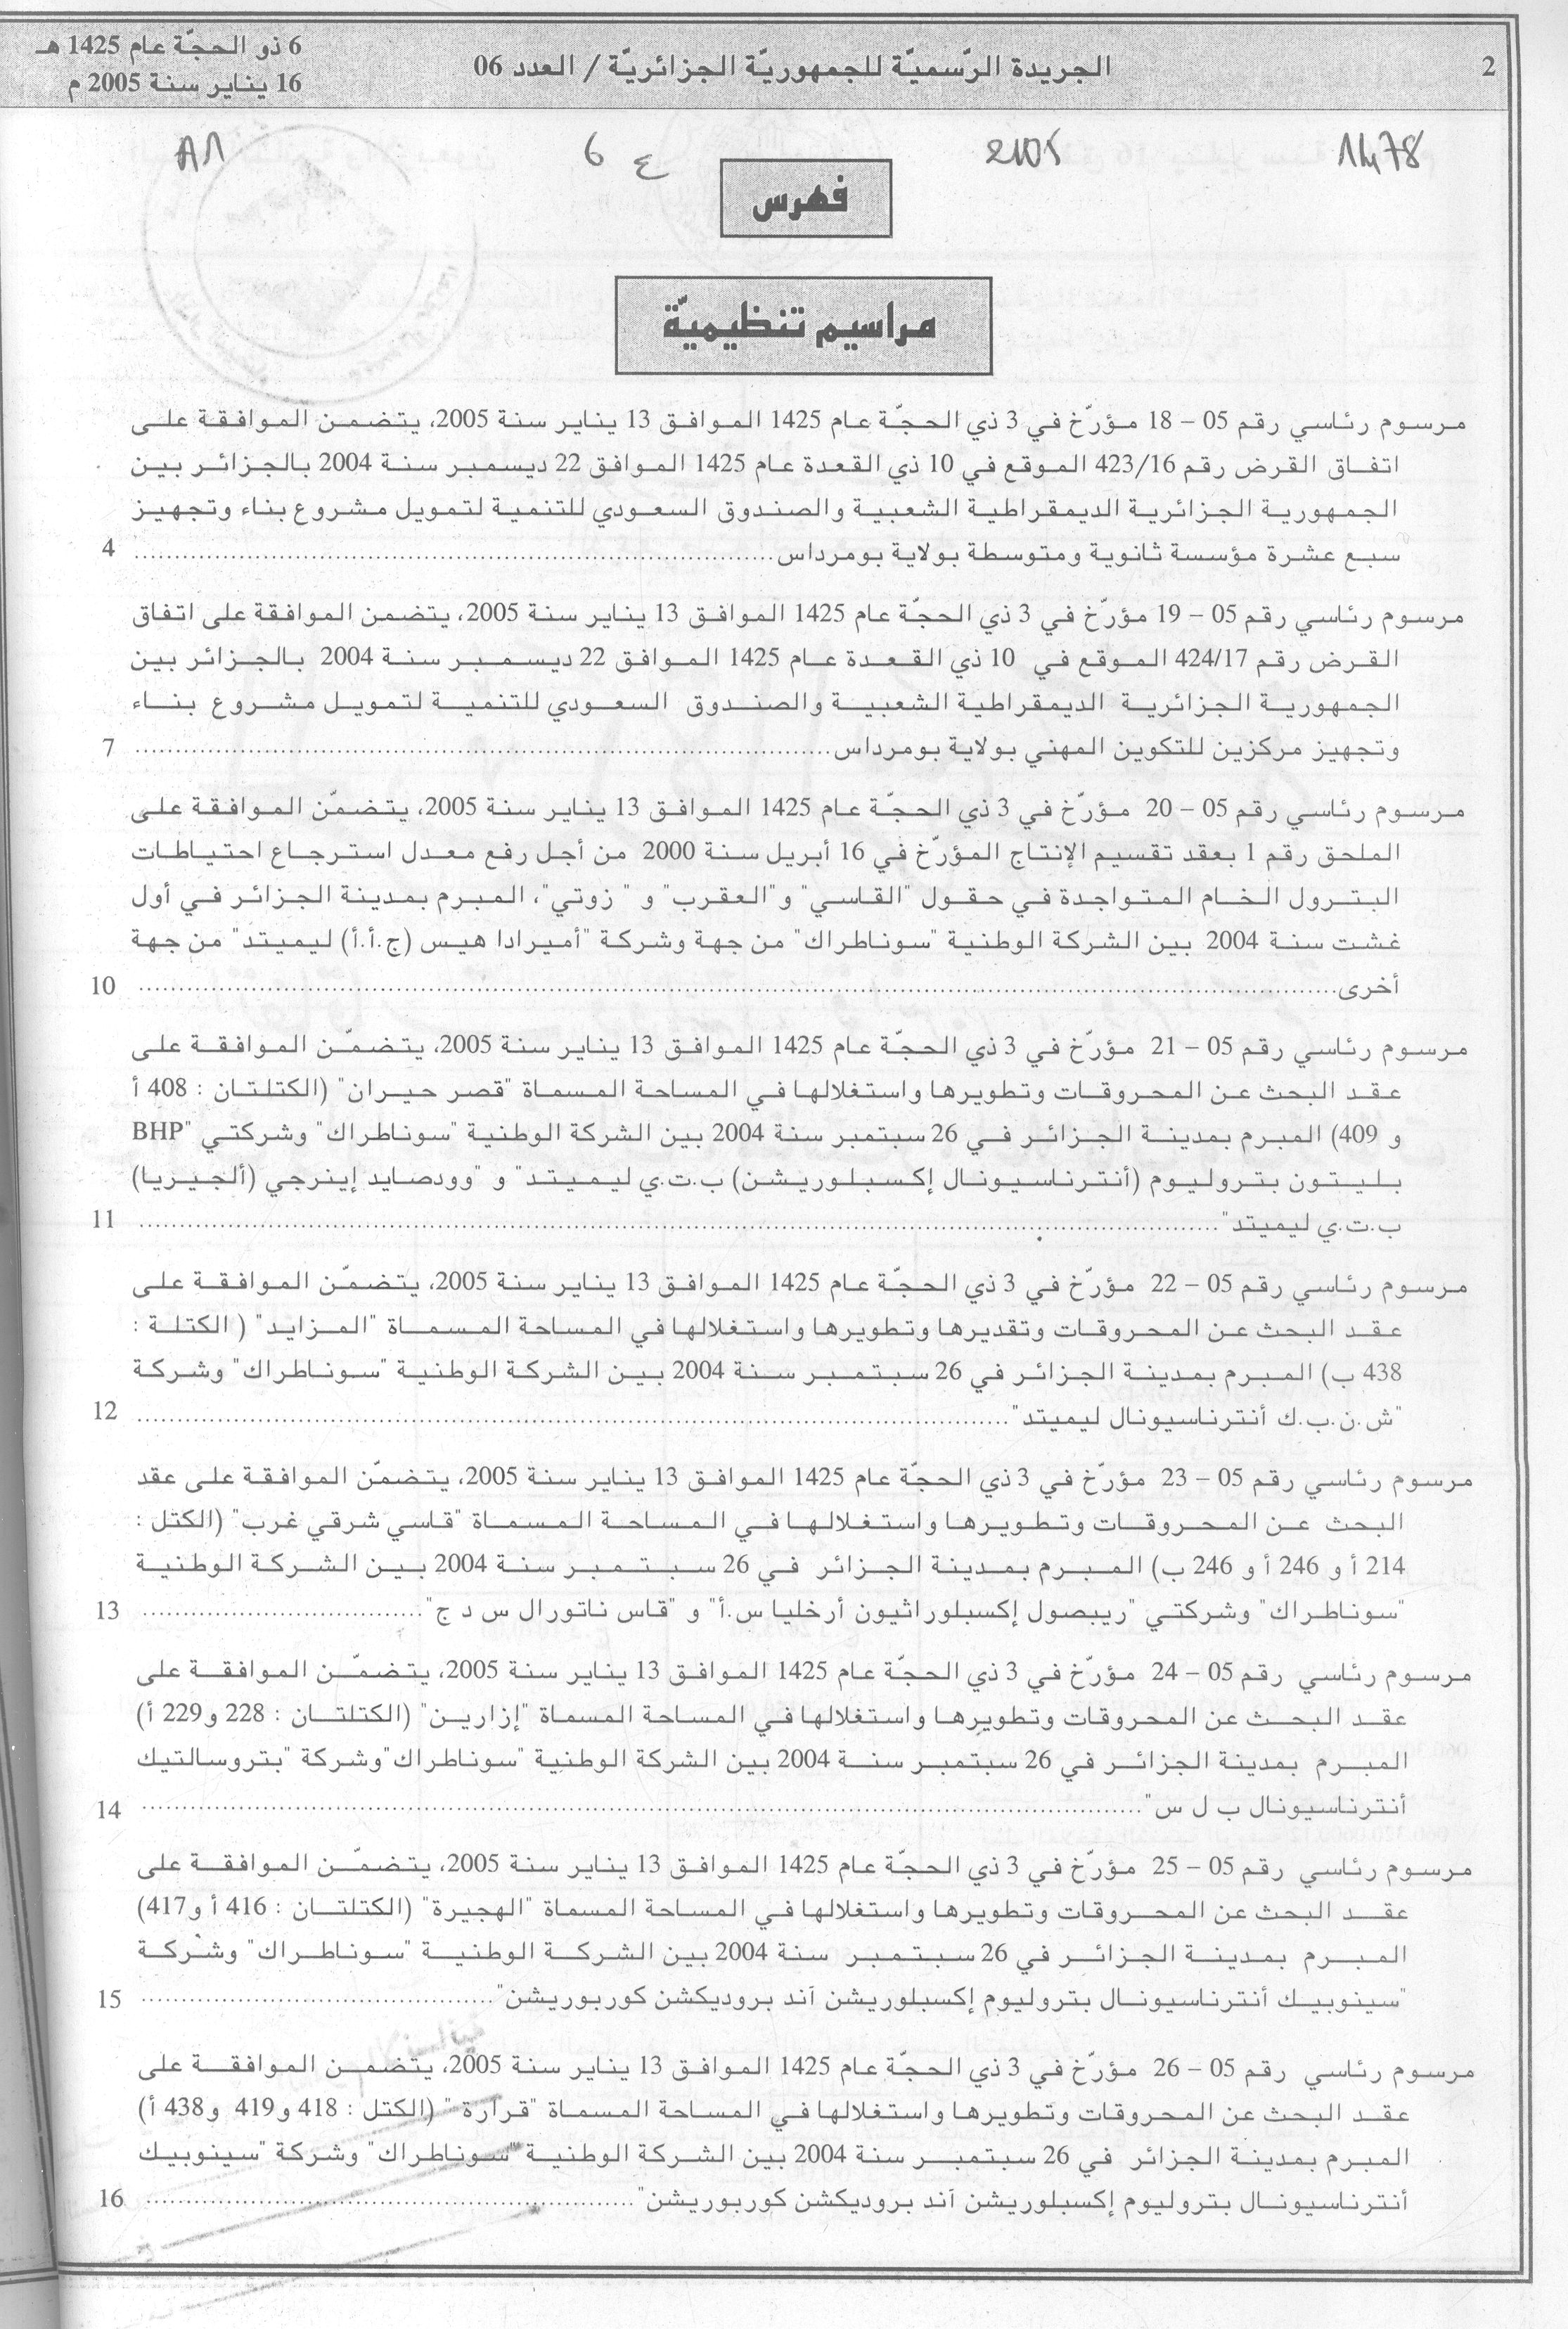 2
الجريدة الرّسميّة للجمهوريّة الجزائريّة / العدد 06
6 ذو الحجّة عام 1425 هـ
16 يناير سنة 2005 م
6 ع
فهرس
مراسيم تنظيميّة
مرسوم رئاسي رقم 05 – 18 مؤرّخ في 3 ذي الحجّة عام 1425 الموافق 13 يناير سنة 2005، يتضمن الموافقة على
اتفاق القرض رقم 423/16 الموقع في 10 ذي القعدة عام 1425 الموافق 22 ديسمبر سنة 2004 بالجزائر بين
الجمهورية الجزائرية الديمقراطية الشعبية والصندوق السعودي للتنمية لتمويل مشروع بناء وتجهيز
سبع عشرة مؤسسة ثانوية ومتوسطة بولاية بومرداس........ 4
مرسوم رئاسي رقم 05 – 19 مؤرّخ في 3 ذي الحجّة عام 1425 الموافق 13 يناير سنة 2005، يتضمن الموافقة على اتفاق
القرض رقم 424/17 الموقع في 10 ذي القعدة عام 1425 الموافق 22 ديسمبر سنة 2004 بالجزائر بين
الجمهورية الجزائرية الديمقراطية الشعبية والصندوق السعودي للتنمية لتمويل مشروع بناء
وتجهيز مركزين للتكوين المهني بولاية بومرداس........ 7
مرسوم رئاسي رقم 05 – 20 مؤرّخ في 3 ذي الحجّة عام 1425 الموافق 13 يناير سنة 2005، يتضمّن الموافقة على
الملحق رقم 1 بعقد تقسيم الإنتاج المؤرّخ في 16 أبريل سنة 2000 من أجل رفع معدل استرجاع احتياطات
البترول الخام المتواجدة في حقول "القاسي" و"العقرب" و " زوتي"، المبرم بمدينة الجزائر في أول
غشت سنة 2004 بين الشركة الوطنية "سوناطراك" من جهة وشركة "أميرادا هيس (ج.أ.أ) ليميتد" من جهة
أخرى........ 10
مرسوم رئاسي رقم 05 – 21 مؤرّخ في 3 ذي الحجّة عام 1425 الموافق 13 يناير سنة 2005، يتضمّن الموافقة على
عقد البحث عن المحروقات وتطويرها واستغلالها في المساحة المسماة "قصر حيران" (الكتلتان : 408 أ
و 409) المبرم بمدينة الجزائر في 26 سبتمبر سنة 2004 بين الشركة الوطنية "سوناطراك" وشركتي "BHP
بليتون بتروليوم (أنترناسيونال إكسبلوريشن) ب.ت.ي ليميتد" و "وودصايد إينرجي (ألجيريا)
ب.ت.ي ليميتد"........ 11
مرسوم رئاسي رقم 05 – 22 مؤرّخ في 3 ذي الحجّة عام 1425 الموافق 13 يناير سنة 2005، يتضمّن الموافقة على
عقد البحث عن المحروقات وتقديرها وتطويرها واستغلالها في المساحة المسماة "المزايد" ( الكتلة :
438 ب) المبرم بمدينة الجزائر في 26 سبتمبر سنة 2004 بين الشركة الوطنية "سوناطراك" وشركة
"ش.ن.ب.ك أنترناسيونال ليميتد"........ 12
مرسوم رئاسي رقم 05 – 23 مؤرّخ في 3 ذي الحجّة عام 1425 الموافق 13 يناير سنة 2005، يتضمّن الموافقة على عقد
البحث عن المحروقات وتطويرها واستغلالها في المساحة المسماة "قاسي شرقي غرب" (الكتل :
214 أ و 246 أ و 246 ب) المبرم بمدينة الجزائر في 26 سبتمبر سنة 2004 بين الشركة الوطنية
"سوناطراك" وشركتي "ريبصول إكسبلوراثيون أرخليا س.أ" و "قاس ناتورال س د ج"........ 13
مرسوم رئاسي رقم 05 – 24 مؤرّخ في 3 ذي الحجّة عام 1425 الموافق 13 يناير سنة 2005، يتضمّن الموافقة على
عقد البحث عن المحروقات وتطويرها واستغلالها في المساحة المسماة "إزارين" (الكتلتان : 228 و 229 أ)
المبرم بمدينة الجزائر في 26 سبتمبر سنة 2004 بين الشركة الوطنية "سوناطراك"وشركة "بتروسالتيك
أنترناسيونال ب ل س"........ 14
مرسوم رئاسي رقم 05 – 25 مؤرّخ في 3 ذي الحجّة عام 1425 الموافق 13 يناير سنة 2005، يتضمّن الموافقة على
عقد البحث عن المحروقات وتطويرها واستغلالها في المساحة المسماة "الهجيرة" (الكتلتان : 416 أ و 417)
المبرم بمدينة الجزائر في 26 سبتمبر سنة 2004 بين الشركة الوطنية "سوناطراك" وشركة
"سينوبيك أنترناسيونال بتروليوم إكسبلوريشن آند بروديكشن كوربوريشن"........ 15
مرسوم رئاسي رقم 05 – 26 مؤرّخ في 3 ذي الحجّة عام 1425 الموافق 13 يناير سنة 2005، يتضمن الموافقة على
عقد البحث عن المحروقات وتطويرها واستغلالها في المساحة المسماة "قرارة" (الكتل : 418 و 419 و 438 أ)
المبرم بمدينة الجزائر في 26 سبتمبر سنة 2004 بين الشركة الوطنية "سوناطراك" وشركة "سينوبيك
أنترناسيونال بتروليوم إكسبلوريشن آند بروديكشن كوربوريشن"........ 16